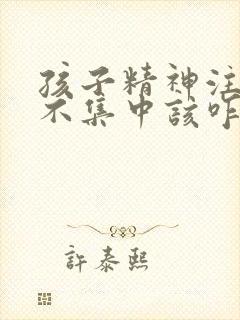 孩子精神注
不集中该咋
許泰熙